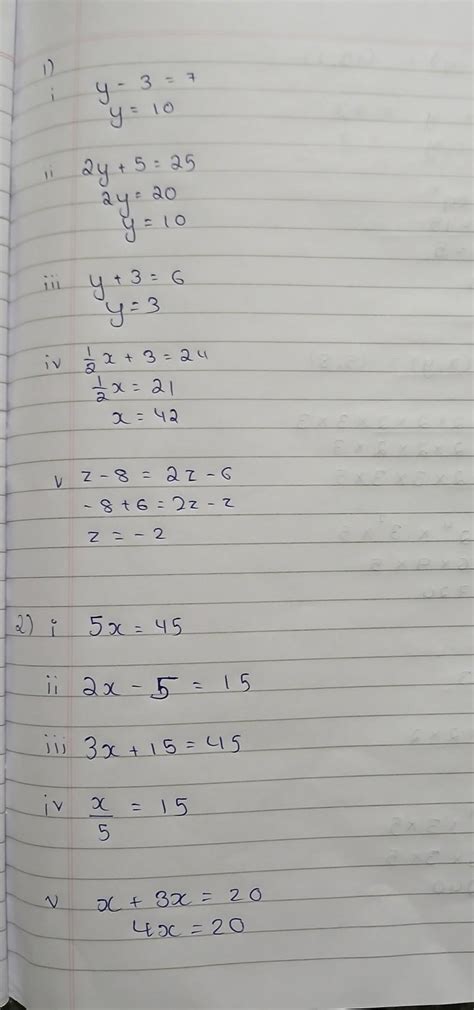 1)
i y - 3 = 7
y = 10
ii 2y + 5 = 25
2y = 20
y = 10
iii y + 3 = 6
y = 3
iv 1/2 x + 3 = 24
1/2 x = 21
x = 42
v z - 8 = 2z - 6
- 8 + 6 = 2z - z
z = - 2
2) i 5x = 45
ii 2x - 5 = 15
iii 3x + 15 = 45
iv x/5 = 15
v x + 3x = 20
4x = 20